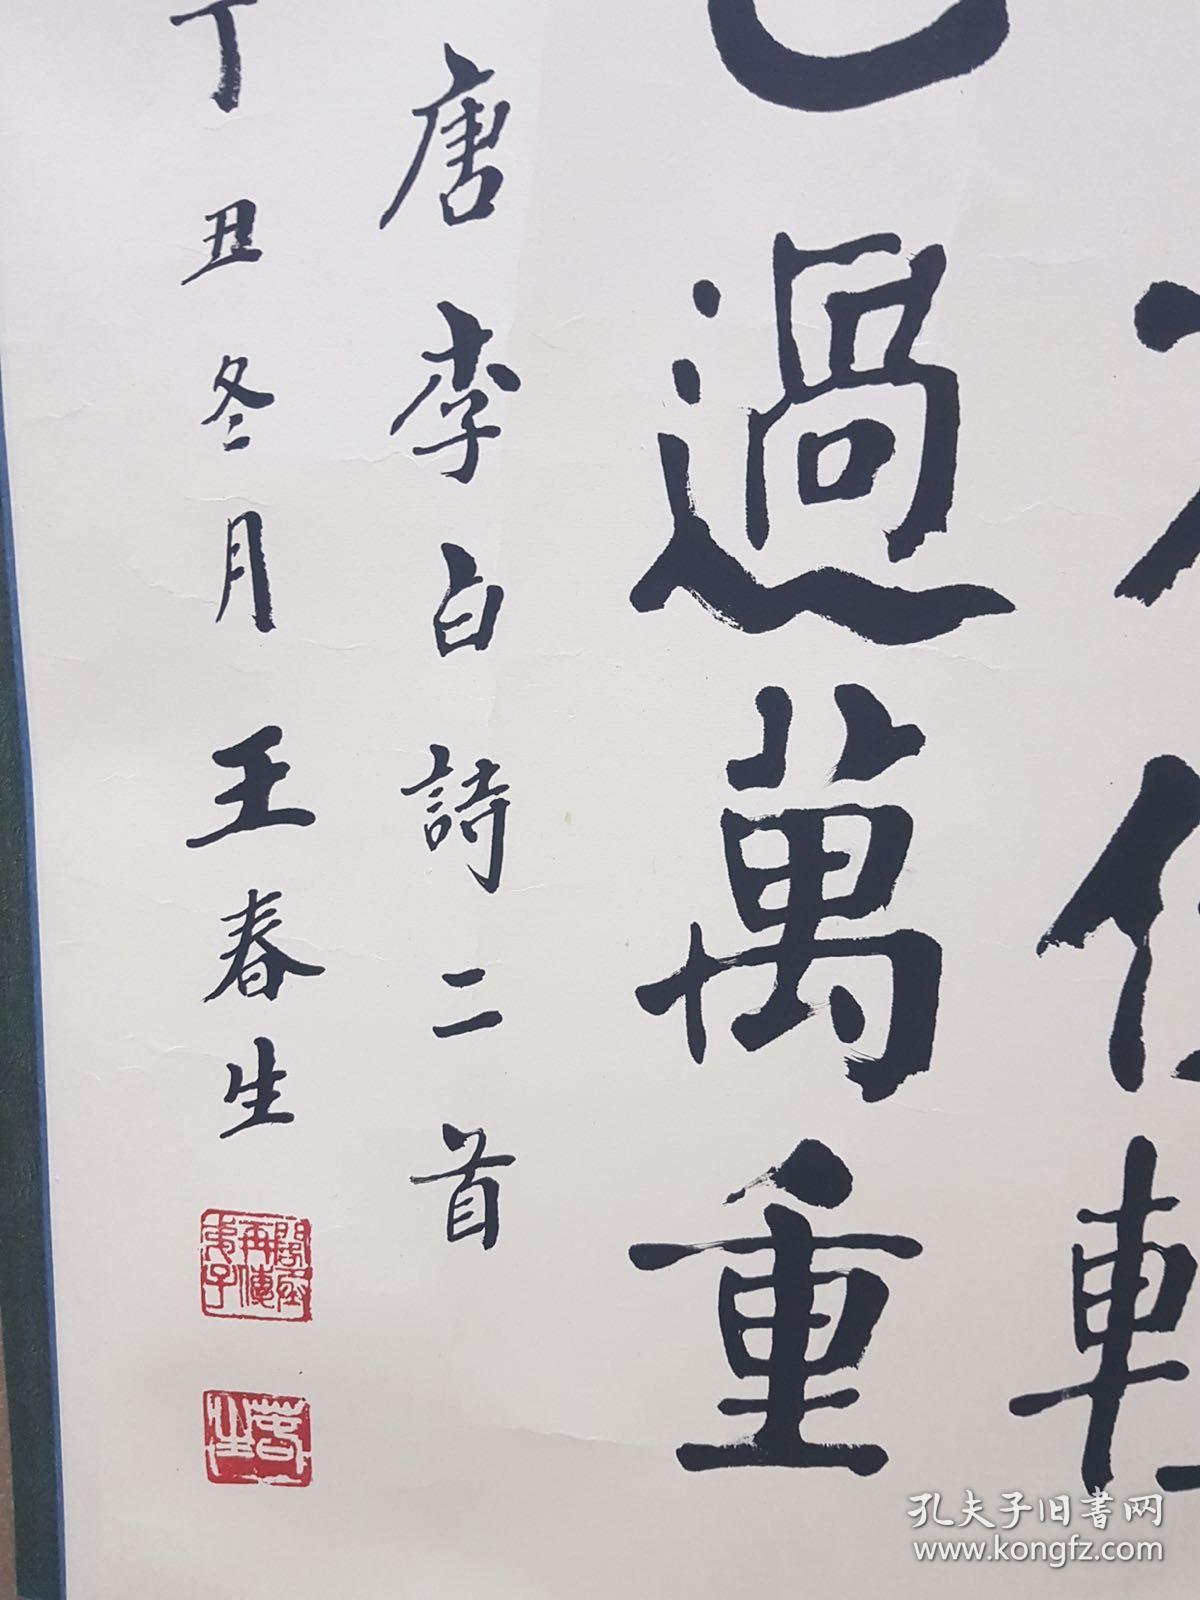 輕
已過萬重
唐李白詩二首
丁丑冬月王春生
再傳
春生
孔夫子旧書网
www.kongfz.com